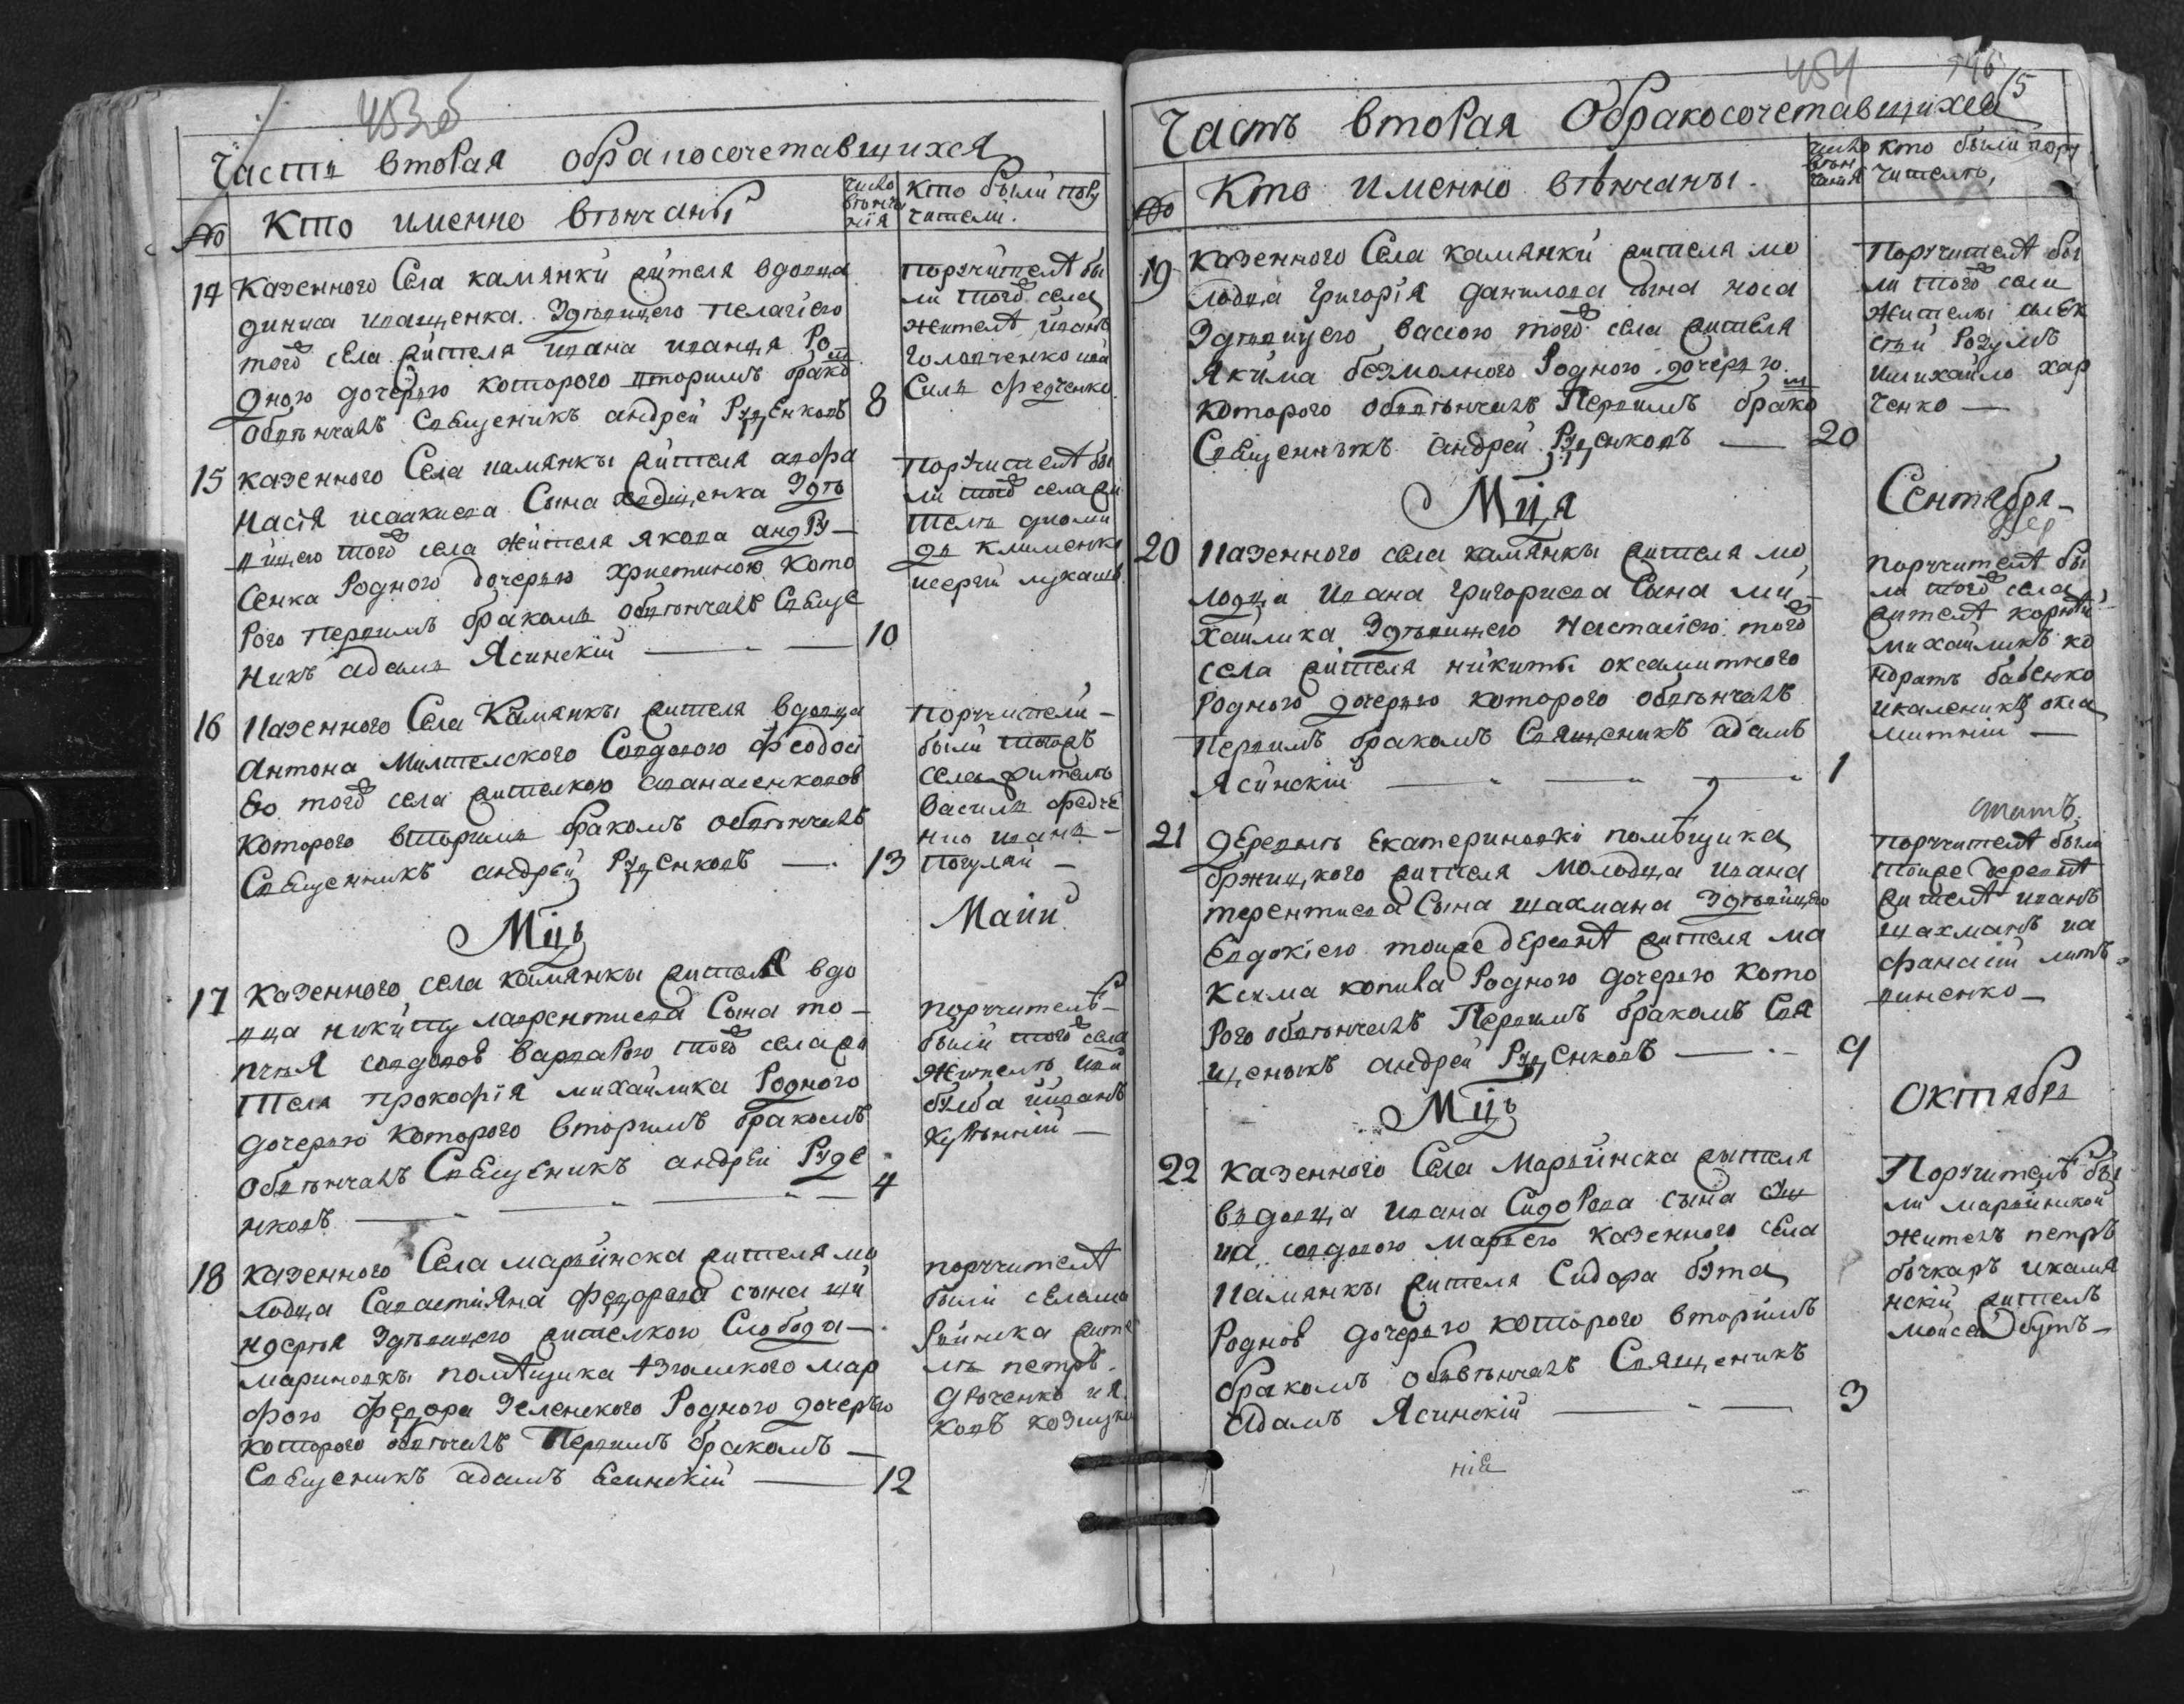 453об
Часть вторая обракосочетавщихся
№ Кто именно вѣнчаны
число вѣнчанія
кто были поручители.
14 Казенного Села камянки жителя вдовца
диниса иващенка. Здѣвицею пелагіею
того села жителя ивана иванця Ро
дною дочерью которого вторимъ бракомъ
Обвѣнчалъ Священикъ андрей Руденковъ 8
Поручителѣ бы
ли того села
жителѣ иванъ
голопченко
Сила федченко
15 казенного Села камянкы жителя афа
насія исаакиева Сына Здѣ
вицею того села жителя якова андру
сенка Родного дочерью христиною кото
рого первимъ бракомъ обвѣнчалъ Свяще
никъ адамъ Ясинскій 10
Поручителѣ бы
ли того села жи
тель
клименко
исергій лукаш
16 Казенного Села Камянкы жителя вдовца
Антона Соддовою феодоси
ею того села жителкою
которого вторимъ бракомъ обвѣнчалъ
Священникъ андрей Руденковъ 13
Поручители
были тогожъ
села жителъ
василь федче
нко иванъ
погуляй
Мцъ Маии
17 Казенного села камянкы жителя вдо
вца никиту лаврентиева Сына то
пчія совдовов варварою того села жи
теля прокофія михайлика Родного
дочерью которого вторимъ бракомъ
Обвѣнчалъ Священикъ андрей Руде
нковъ 4
поручителѣ
были того села
жителъ
иванъ
18 казенного Села марьинска жителя мо
лодца Савастіяна федорова сына
здѣвицею жителкою Слободы
мариновкы помѣщика мар
фою федора Зеленского Родного дочерью
которого обвѣнчалъ Первимъ бракомъ
Священикъ адамъ Ясинскій 12
поручителѣ
были села ма
рьинска жите
ль петръ
дяченко ия
ковъ
454
15
Часть вторая Обракосочетавщихся
№ Кто именно вѣнчаны.
число вѣнчанія
кто были пору
чителѣ,
19 казенного Села камянки жителя мо
лодца григорія данилова сына носа
Здѣвицею вассою того села жителя
Якима безмолного Родного дочерью
которого обвѣнчалъ Первимъ бракомъ
Священникъ андрей Руденковъ 20
Поручителѣ бы
ли того села
жителы алек
сѣй Розумъ
имихайло хар
ченко
Мця Сентября
20 Казенного села камянкы жителя мо
лодца Ивана григориева Сына ми
хайлика Здѣвицею Настасіею того
села жителя никиты оксамитного
Родного дочерью которого обвѣнчалъ
Первимъ бракомъ Священикъ адамъ
Ясинскій 1
поручителѣ бы
ли того села
жителѣ корній
михайликъ ко
ндратъ бабенко
икаленикъ окса
митній
21 деревнѣ Екатериновкі помѣщика
бржицкого жителя молодца ивана
терентиева Сына шахмана Здѣвицею
Евдокіею тоиже деревнѣ жителя ма
ксима копива Родного дочерью кото
рого обвѣнчалъ Первимъ бракомъ Свя
щеникъ андрей Руденковъ 9
поручителѣ были
тоиже деревнѣ
жителѣ иванъ
шахманъ иа
фанасій литв
иненко
Мцъ Октябрь
22 казенного Села Марьинска жителя
вдовца ивана Сидорова сына
совдовою марѳею казенного села
камянкы жителя Сидора бута
Родной дочерью которого вторимъ
бракомъ обвѣнчалъ Священикъ
адамъ Ясинскій 3
Поручителѣ бы
ли марьинской
жителъ петръ
бочкаръ икамя
нскій жителъ
мойсей бутъ
нія